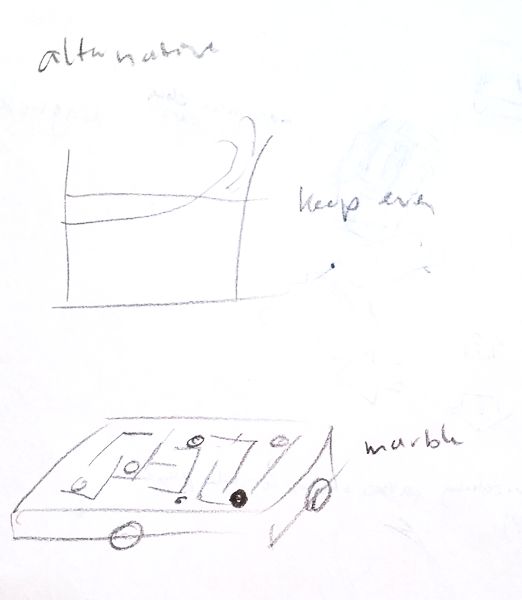 alternative
keep even
marble